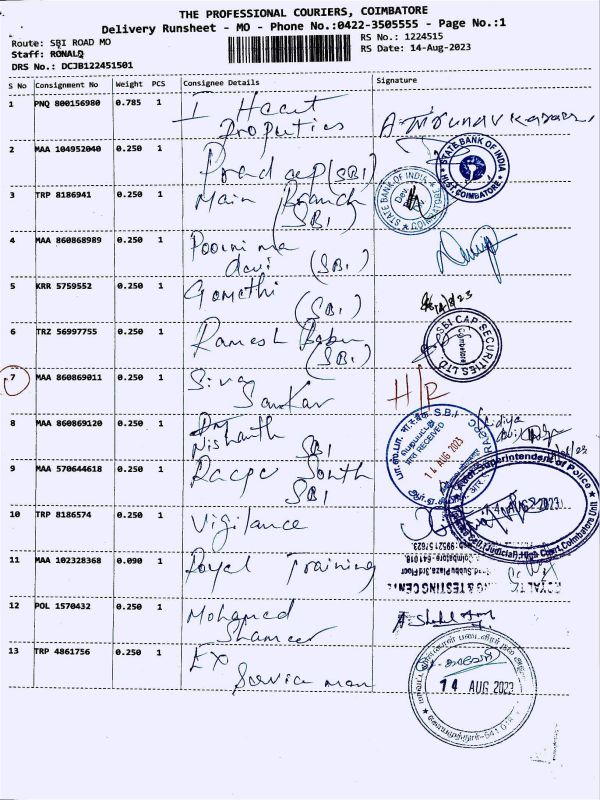 THE PROFESSIONAL COURIERS, COIMBATORE
Delivery Runsheet - MO - Phone No.:0422-3505555 - Page No.:1
Route: SBI ROAD MO
RS No.: 1224515
Staff: RONALD
RS Date: 14-Aug-2023
DRS No.: DCJB122451501
S No Consignment No Weight PCS Consignee Details Signature
1 PNQ 800156980 0.785 1 I Haaut
Properties
2 MAA 104952040 0.250 1 Pradeep (SBI)
STATE BANK OF INDIA
COIMBATORE
3 TRP 8186941 0.250 1 Main Branch
(SBI)
STATE BANK OF INDIA
4 MAA 860868989 0.250 1 Poornima
devi (SBI)
5 KRR 5759552 0.250 1 Gomathi (SBI)
14/8/23
6 TRZ 56997755 0.250 1 Ramesh Babu
(SBI)
SBI CAP SECURITIES LTD.
Coimbatore
7 MAA 860869011 0.250 1 Siva
Sankar H/R
8 MAA 860869120 0.250 1 Nishanth
SBI
S.B.I.
RECEIVED
14 AUG 2023
9 MAA 570644618 0.250 1 Racpc South
SBI
Superintendent of Police
(Judicial), High Court, Coimbatore Unit
10 TRP 8186574 0.250 1 Vigilance
11 MAA 102328368 0.090 1 Royal Training
Coimbatore - 641018.
& TESTING CEN
12 POL 1570432 0.250 1 Mohamed
Shameer
13 TRP 4861756 0.250 1 EX
Service man
14 AUG 2023